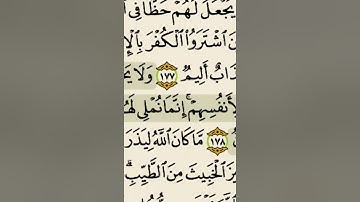 يَجْعَلَ لَهُمْ حَظًّا فِي
نَ ٱشْتَرَوُا۟ ٱلْكُفْرَ بِٱلْإِ
ذَابٌ أَلِيمٌ ١٧٧ وَلَا يَحْ
لِأَنفُسِهِمْ ۚ إِنَّمَا نُمْلِي لَهُ
١٧٨ مَّا كَانَ ٱللَّهُ لِيَذَرَ
زَ ٱلْخَبِيثَ مِنَ ٱلطَّيِّبِ ۗ